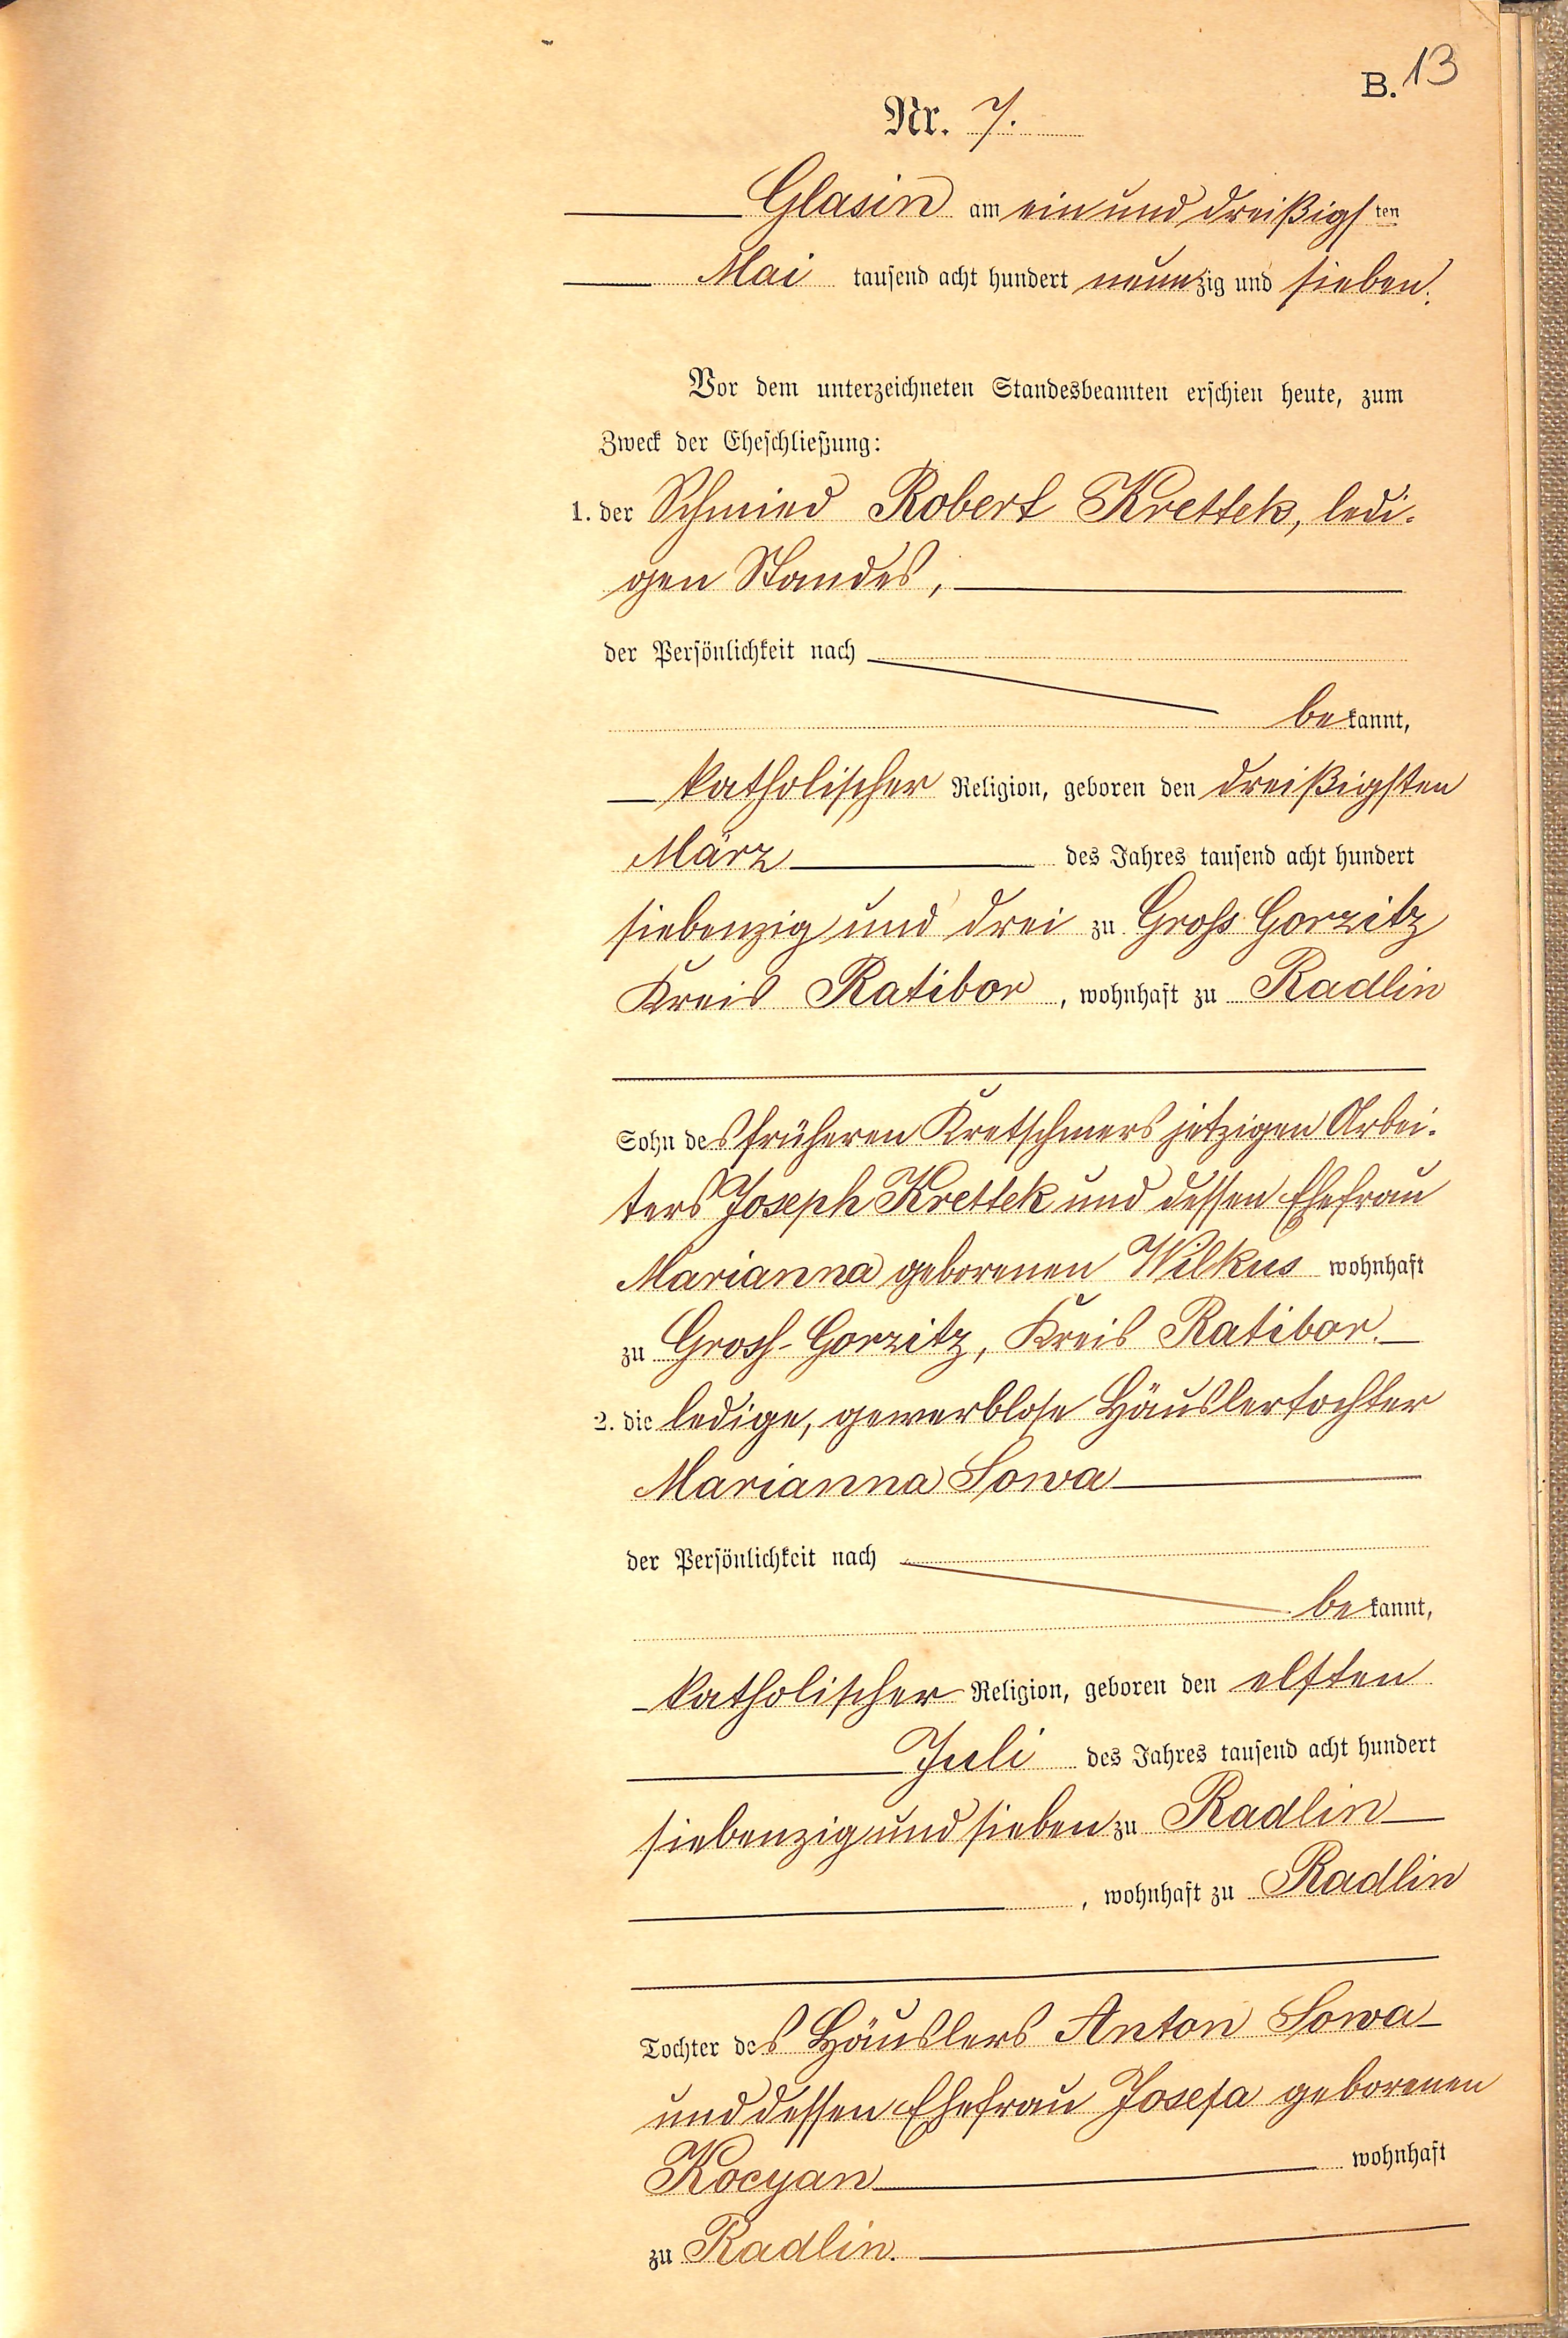 B. 13
Nr. 7.
Glasin am ein und dreißigsten
Mai tausend acht hundert neunzig und sieben.
Vor dem unterzeichneten Standesbeamten erschien heute, zum
Zweck der Eheschließung:
1. der Schmied Robert Krettek, ledi-
gen Standes,
der Persönlichkeit nach
bekannt,
katholischer Religion, geboren den dreißigsten
März des Jahres tausend acht hundert
siebenzig und drei zu Groß Gorzitz
Kreis Ratibor, wohnhaft zu Radlin
Sohn des früheren Kretschmers jetzigen Arbei-
ters Joseph Krettek und dessen Ehefrau
Marianna geborenen Wilkus wohnhaft
zu Groß-Gorzitz, Kreis Ratibor.
2. die ledige, gewerblose Häuslertochter
Marianna Sowa
der Persönlichkeit nach
bekannt,
katholischer Religion, geboren den elften
Juli des Jahres tausend acht hundert
siebenzig und sieben zu Radlin
, wohnhaft zu Radlin
Tochter des Häuslers Anton Sowa
und dessen Ehefrau Josefa geborenen
Kocyan wohnhaft
zu Radlin.